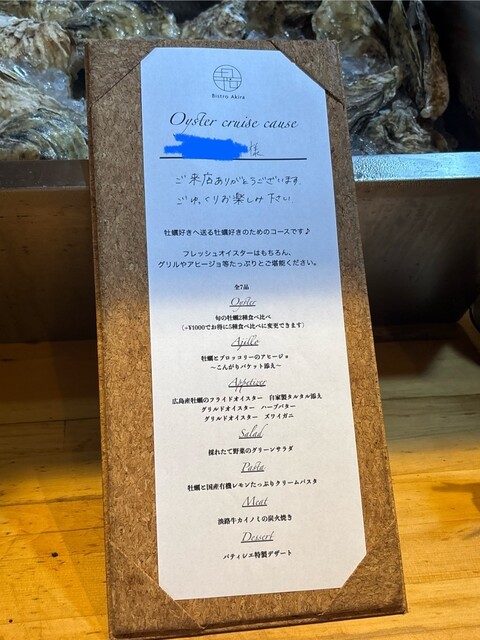 Bistro Akira
Oyster cruise cause
様
ご来店ありがとうございます
ごゆっくりお楽しみ下さい
牡蠣好きへ送る牡蠣好きのためのコースです♪
フレッシュオイスターはもちろん、
グリルやアヒージョ等たっぷりとご堪能ください。
全7品
Oyster
旬の牡蠣2種食べ比べ
(+¥1000でお得に5種食べ比べに変更できます)
Ajillo
牡蠣とブロッコリーのアヒージョ
〜こんがりバケット添え〜
Appetizer
広島産牡蠣のフライドオイスター 自家製タルタル添え
グリルドオイスター ハーブバター
グリルドオイスター ズワイガニ
Salad
採れたて野菜のグリーンサラダ
Pasta
牡蠣と国産有機レモンたっぷりクリームパスタ
Meat
淡路牛カイノミの炭火焼き
Dessert
パティシエ特製デザート